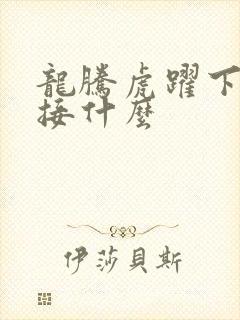 龍騰虎躍下
接什麼
伊莎貝斯